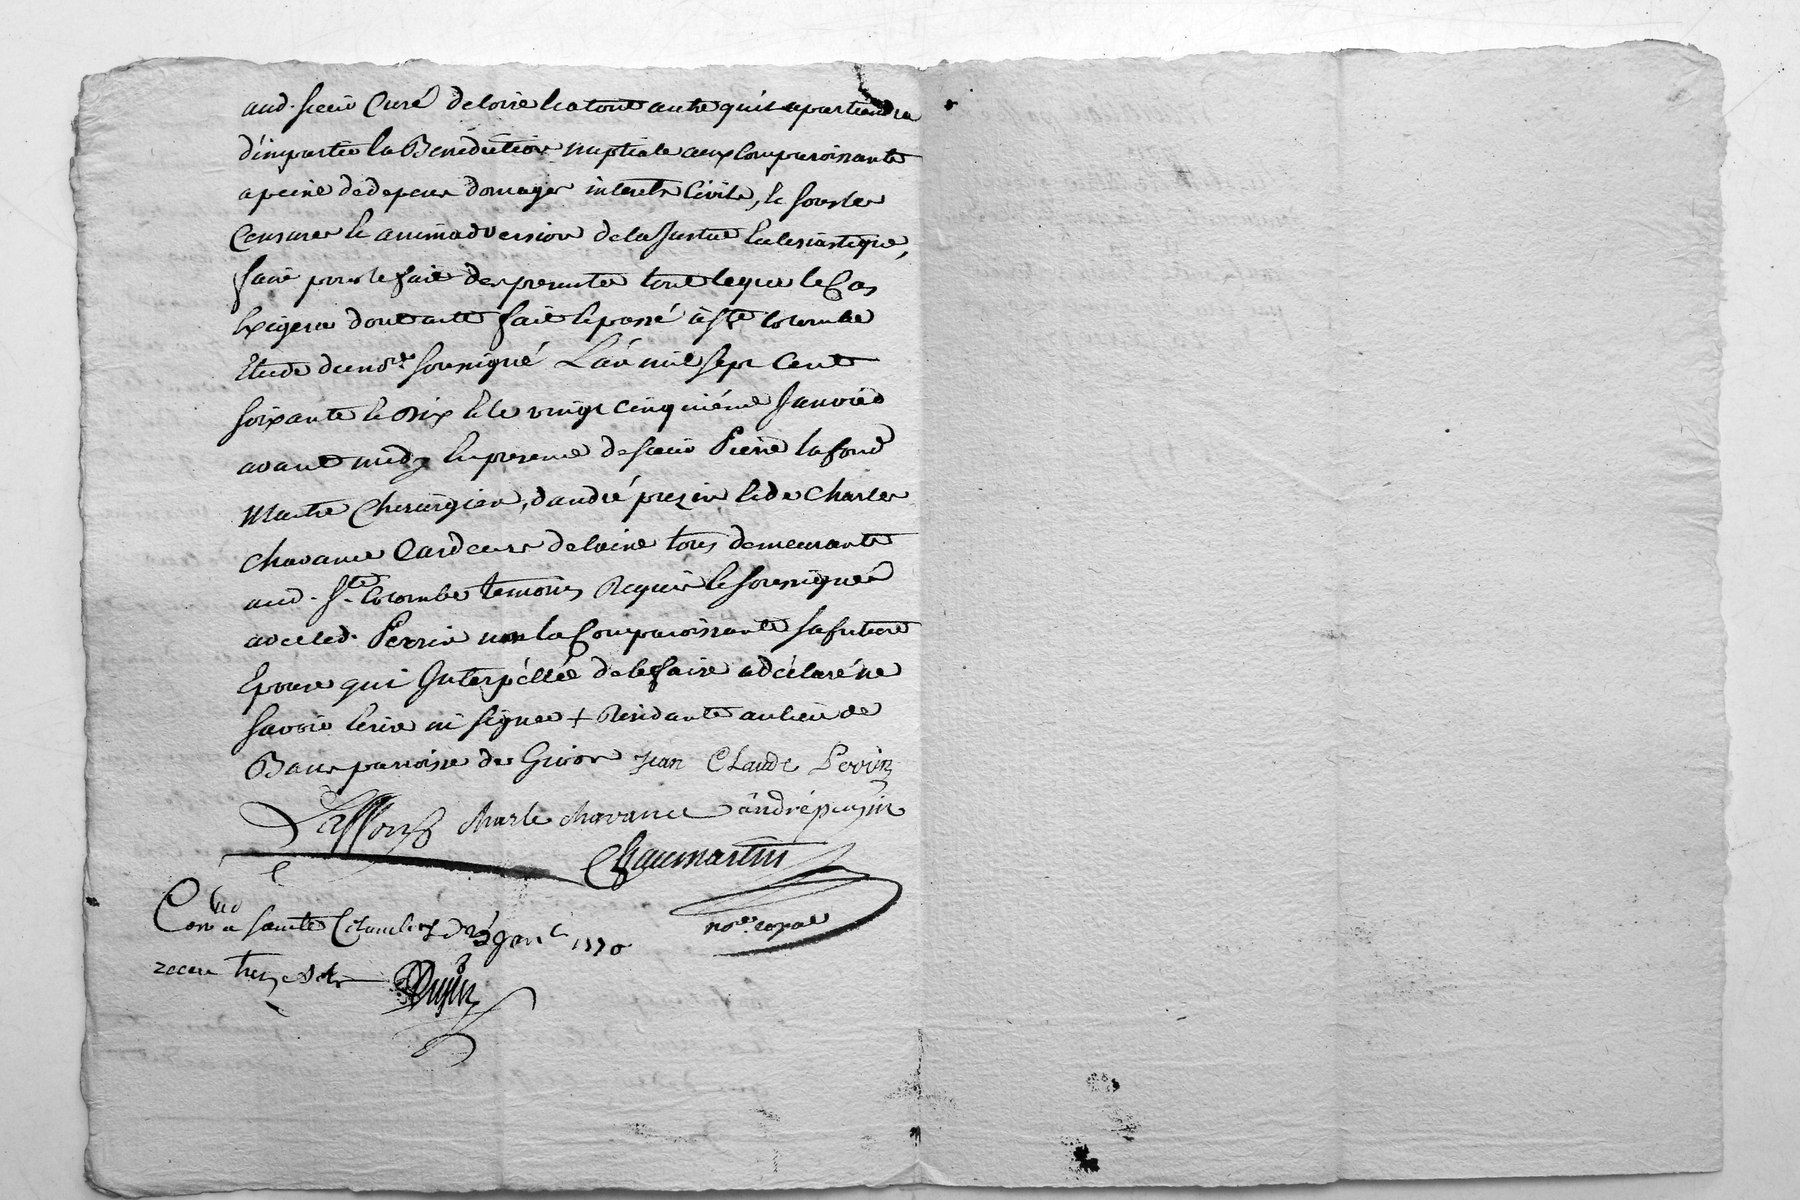 aud. sieur Curé de loire et a tout autre qu'il apartiendra
d'impartir la Benediction nuptiale aux Comparoissants
a peine de depens domages interets Civils, et sous les
Censures et animadversion de la Justice Eclesiastique,
faire pour le fait des presentes tout ce que le Cas
Exigera dont acte fait et passé à Ste Colombe
Etude du nore. soussigné L'an mil sept cent
soixante et Dix et le vingt cinquiéme Janvier
avant midy En presence de sieur Pierre lafond
Maitre Chirurgien, d'andré prezin et de Charles
chavance Cardeurs de laine tous demeurants
aud. Ste. Colombe temoins Requis et soussignés
avec led. Perrin non la Comparoissante sa future
Epouse qui Interpéllée de le faire a déclaré ne
savoir Ecrire ni signer + Residante au lieu de
Bans parroisse de Givors Jean Claude Perrin
Laffond Charle Chavance andré prezin
Chaumartin
nore. royal
Con a sainte Colombe le 25 janv 1770
recu treize sols